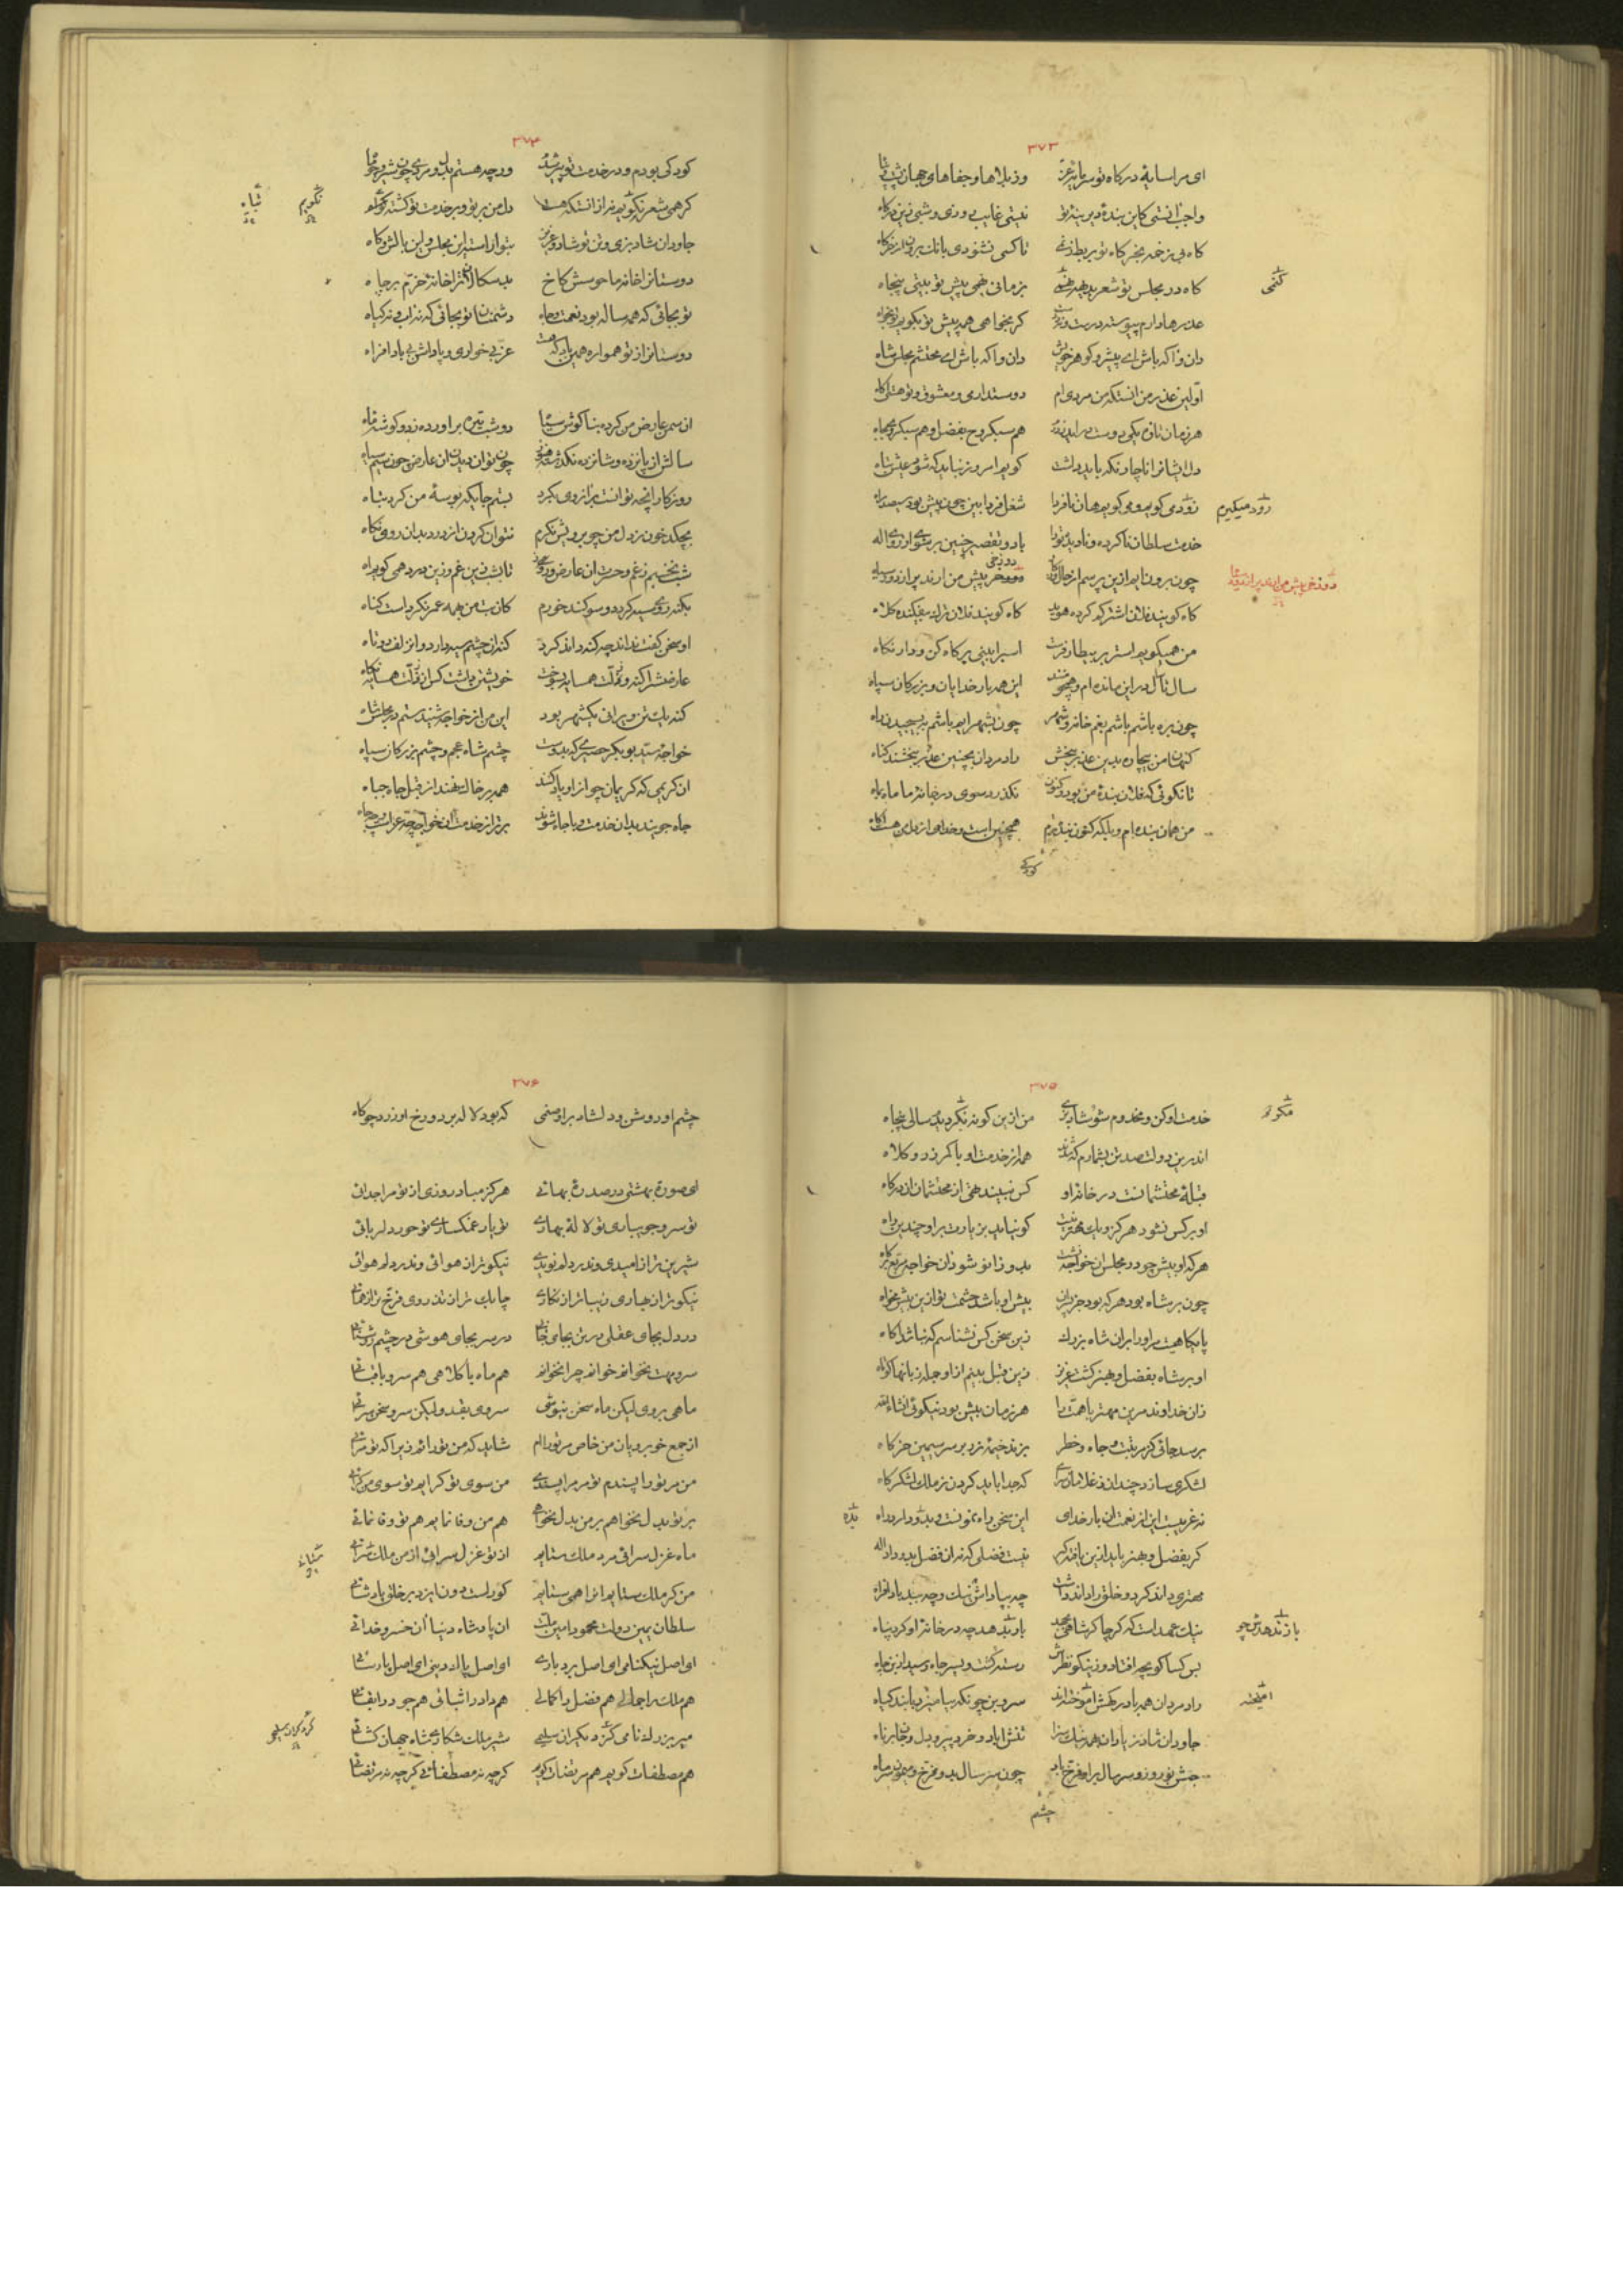 ۳۷۳
ای مرا سایهٔ درگاه تو سرمایهٔ عز وز بلاها و جفاهای جهان پشت و پناه
واجب انستی کاین بندهٔ دیرینهٔ تو نیستی غایب روزی و شبی زین درگاه
کاه بی زخمه بخرگاه تو بربط زنمی تا کسی نشنودی بانک برون از خرگاه
کاه در مجلس تو شعر بدیهه کنمی بزمانی همی پیش تو بیتی پنجاه
کنمی
عذرها دارم پیوسته درست و نه درست کر بخواهی همه پیش تو بکویم تو بخواه
دان و اکه باش ای پیشرو کوهر خویش دان و اکه باش ای محتشم مجلس شاه
اولین عذر من انستکه من مردی ام دوستداری و معشوق و تو هستی اکاه
هر زمان تازه یکی دوست در اید ز درم هم سبکروح بفضل و هم سبکروح بجاه
دل ایشانرا ناچار نکه باید داشت کویم امروز نباید که شود عیش تباه
رود میکیرم
رودی کویم و می کویم هان تا فردا شغل فردا بین چون پیش بود سیصد راه
خدمت سلطان ناکرده و نادیده ترا با دو تقصیر چنین
چون برون ایم ازین پرسم از حال
دوزخی پیش من ارند پر از دود سیاه
کاه کویند فلان اشتر که کرده کاه کویند فلان نزل بیفکنده کلاه
من همیکویم استر بر بیطار فرست اسبرا بینی بر کاه کن و دار نکاه
سال تا سال درین مانده ام و همچو منند این همه بار خدایان و بزرکان سپاه
چون بره باشم باشم بغم خانه و شهر چون بشهر ایم باشم به بسیجیدن راه
کنه من بیچاره بدین عذر ببخش راد مردان بچنین عذر ببخشند کناه
تا نکوئی که فلان بندهٔ من بود و کنون نکذرد سوی در خانهٔ ما ماه بماه
من همان بنده ام و بلکه کنون بنده ترم همچنین است و خدای از دل من هست اکاه
کودکی
۳۷۴
کودکی بودم و در خدمت تو پیر شدم ورچه هستم بدل و مردی چون شیر
نکویم
ثناه
کر همی شعر نکویم نه از انست که هست دل من بر تو و بر خدمت تو کشته تباه
جاودان شاد بزی و تن تو شاد و عزیز بتو اراسته این مجلس و این بالش و کاه
دوستانرا خانه ما خوشش کاخ بد سکالان ترا خانهٔ خرم بر چاه
تو بجائی که همه ساله بود نعمت و جاه دشمنان تو بجائی که نه اب و نه کیاه
دوستانرا از تو همواره همین باد که هست عز بی خواری و پاداش بی بادافراه
ان سمن عارض من کرد بنا کوش سیاه دو شب تیره براورده ز دو کوشهٔ ماه
سالش از پانزده و شانزده نکذشته هنوز چون توان دیدن ان عارض چون سیم سیاه
روزکار انچه توانست بر انروی بکرد بستر جایکه بوسهٔ من کرد تباه
بچکد خون ز دل من چو برویش نکرم نتوان کردن از درد بدان روی نکاه
شب نخسپیم ز غم و حسرت ان عارض و روی تا بشب زین غم و زین درد همی کویم اه
بکنه روی سیه کردد و سوکند خورم کان بت من بهمه عمر نکرداست کناه
او سخن کفت نداند چه کنه داند کرد کنه از چشم سیه دارد و از زلف دوتاه
عارضش را کنه و زلت همسایه بسوخت خویشتن داشت کس از زلت همسایه نکاه
کنه یک تن ویرانی یکشهر بود این من از خواجه شنیدستم در مجلس شاه
خواجه سید بوبکر حصیری که بدوست چشم شاه عجم و چشم بزرکان سپاه
ان کریمی که کریمان چو ازو یاد کنند همه بر خاک نهند از قبل جاه جباه
جاه جویند بدان خدمت و با جاه شوند برتر از خدمت ان خواجه
۳۷۵
مکرد
خدمت او کن و مخدوم شو و شاد بزی من ازین کونه نکردیدم سالی پنجاه
اندرین دولت صد تن بشمارم که شدند همه از خدمت او با کمر زر و کلاه
قبلهٔ محتشمانست در خانهٔ او کس نبیند تهی از محتشمان ان درکاه
او بر کس نشود هرکز و کو نیاید بزیارت بر او چندین راه
هر که او بیش چو در مجلس ان خواجه نشست بدو زانو شود ان خواجه
چون بر شاه بود هر که بود جز پدران بیش او باشد حشمت تو ازین بیش مخواه
پایکاهیست مر او را بر ان شاه بزرک زین سخن کس نشناسم که نباشد اکاه
او بر شاه بفضل و هنر کشت عزیز زین قبل بینم ازو جمله زبانها کوتاه
زان خداوند مرین مهتر با همت را هر زمان بیش بود نیکوئی انشاء الله
برسد جائی کز مرتبت و جاه و خطر بزند خیمه زر بر سر سیمین خرکاه
لشکری سازد چندان ز غلامان سرای که جدا باید کردن ز ملک لشکرکاه
بده
نه غریبست این از نعمت ان بار خدای این سخن راه نمونست و بدو دارد راه
کر بفضل و هنر باید ازین یافت کس نیست فضلی که نه ان فضل بدو داد اله
مهتری داند کرد و خلق را داند داشت چه بپاداش نیک و چه ببد بادافراه
یا زند هر چو
نیک عهد است که کرچاکر شاهی باز نهد در خانهٔ او کرد پناه
بس کسا کو بچه افتاد و ز نیکو نظرش رسته کشت و بسر جاه رسید از بن چاه
امیخته
راد مردان همه با درکهش اموخته اند سر و بن چونکه بیامیزد با بند کیاه
جاودان شاد زیاد ان همه نیک سزا تنش اباد و خرد پیر و دل و جان برناه
جشن نوروز و سر سال بر او فرخ باد چون سر سال بدو فرخ و میمون سر ماه
چشم
۳۷۶
چشم او روشن و دلشاد بر او صنمی که بود لاله بر دو رخ او زرد چو کاه
ای صورت بهشتی در صدرهٔ بهائی هرکز مباد روزی از تو مرا جدائی
تو سرو جویباری تو لالهٔ بهاری تو یار غمکساری تو حور دلربائی
شیرین تر از امیدی وندر دلم نویدی نیکوتر از هوائی وندر دلم هوائی
نیکوتر از بهاری زیباتر از نکاری چابک تر از تذروی فرخ تر از همائی
در دل بجای عقلی در تن بجای جانی در سر بجای هوشی در چشم روشنائی
سرو و مهت نخوانم خوانم چرا نخوانم هم ماه با کلاهی هم سرو با قبائی
ماهی بروی لیکن ماه سخن نیوشی سروی بقد و لیکن سرو سخن سرائی
از جمع خوبرویان من خاص مر ترا ام شاید که من ترا ام زیرا که تو مرائی
من مر ترا پسندم تو مر مرا پسندی من سوی تو کرایم تو سوی من کرائی
بر تو بدل نخواهم بر من بدل نخواهی هم من وفا نمایم هم تو وفا نمائی
ستاء
ماه غزل سرائی مرد ملک ستایم از تو غزل سرائی از من ملک ستائی
من کر ملک ستایم انرا همی ستایم کورست دون ایزد بر خلق پادشائی
سلطان یمین دولت محمود امین ملت ان پادشاه دنیا ان خسرو خدائی
ای اصل نیکنامی ای اصل بردباری ای اصل پاک دینی ای اصل پارسائی
هم ملک را جمالی هم فضل را کمالی هم داد را ثباتی هم جود را بقائی
میر بزرک نامی کرد کران سلیحی شیر ملک شکاری شاه جهان کشائی
کرد کران سلیحی
هم مصطفات کویم هم مرتضات کویم کرچه نه مصطفائی کرچه نه مرتضائی